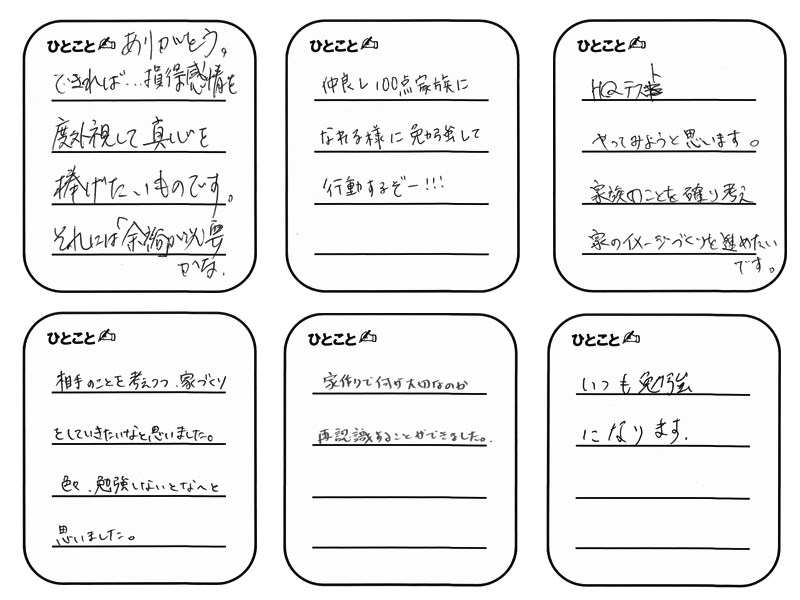 ひとこと ありがとう。
できれば…損得感情を
度外視して真心を
捧げたいものです。
それには「余裕」が必要
かな.
ひとこと
仲良し100点家族に
なれる様に勉強して
行動するぞー!!!
ひとこと
HQテスト
やってみようと思います。
家族のことを確り考え
家のイメージづくりを進めたい
です。
ひとこと
相手のことを考えつつ、家づくり
をしていきたいなと思いました。
色々、勉強しないとなへと
思いました。
ひとこと
家作りで何が大切なのか
再認識することができました。
ひとこと
いつも勉強
になります.